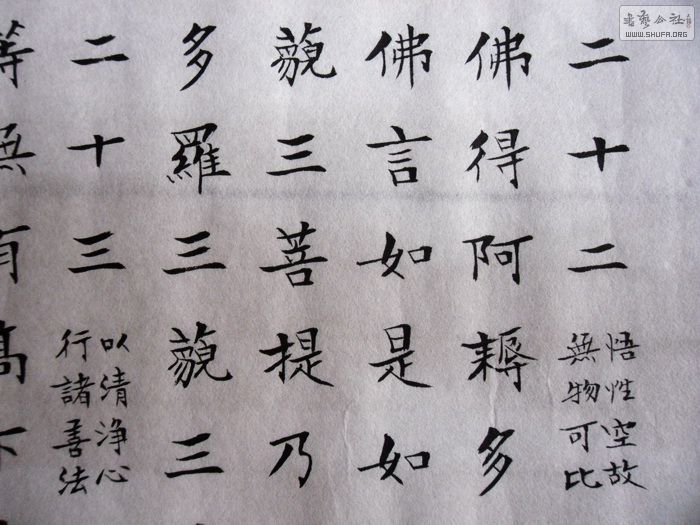 二十二
悟性空故
無物可比
佛得阿耨多
佛言如是如
藐三菩提乃
多羅三藐三
二十三
以清淨心
行諸善法
等無有高下
書藝公社
WWW.SHUFA.ORG